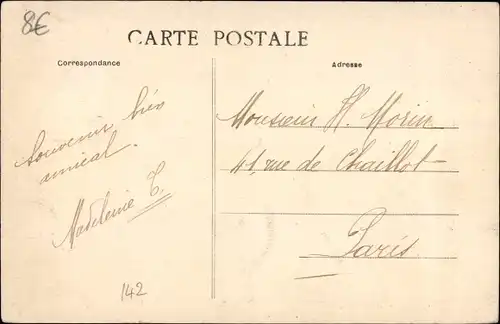 8€
CARTE POSTALE
Correspondance
Adresse
Souvenir bien
amical.
Madeleine T.
142
Monsieur H. Morin
41, rue de Chaillot
Paris